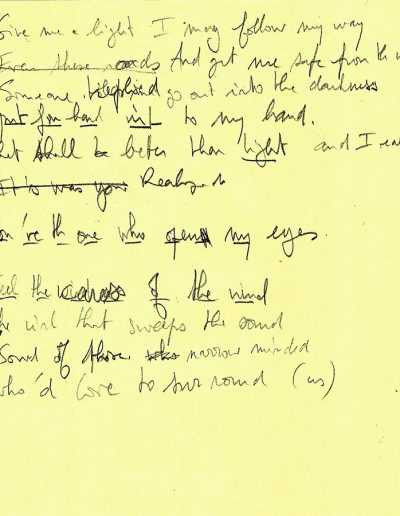 Give me a light I may follow my way
Even these roads And get me safe from the
Someone go out into the darkness
put your hand into to my hand.
that shall be beter than light and I
It is was you Realized
you're the one who open my eyes.
feel the of the wind
the wind that sweeps the sound
Sound of those who narrow minded
who'd love to surround (us)